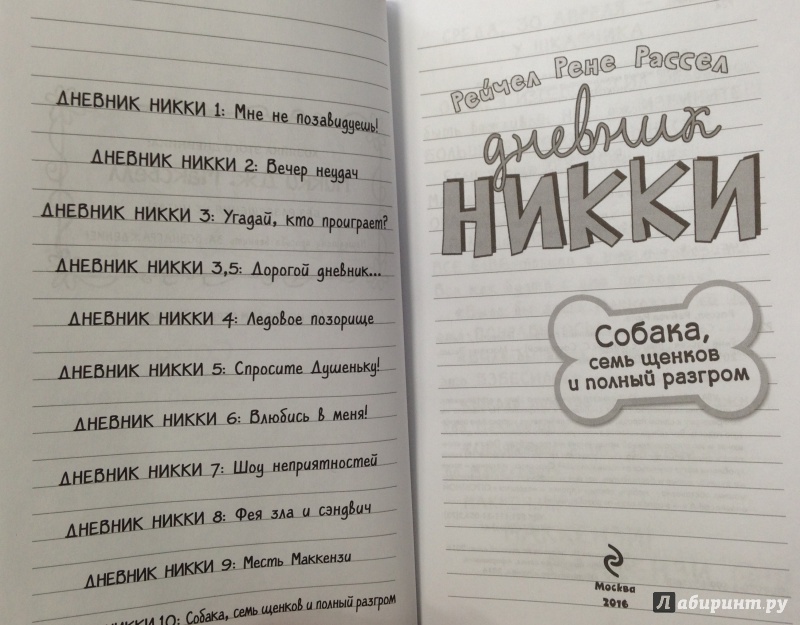 ДНЕВНИК НИККИ 1: Мне не позавидуешь!
ДНЕВНИК НИККИ 2: Вечер неудач
ДНЕВНИК НИККИ 3: Угадай, кто проиграет?
ДНЕВНИК НИККИ 3,5: Дорогой дневник...
ДНЕВНИК НИККИ 4: Ледовое позорище
ДНЕВНИК НИККИ 5: Спросите Душеньку!
ДНЕВНИК НИККИ 6: Влюбись в меня!
ДНЕВНИК НИККИ 7: Шоу неприятностей
ДНЕВНИК НИККИ 8: Фея зла и сэндвич
ДНЕВНИК НИККИ 9: Месть Маккензи
НИККИ 10: Собака, семь щенков и полный разгром
Рейчел Рене Рассел
дневник
НИККИ
Собака,
семь щенков
и полный разгром
Москва
2016
Лабиринт.ру